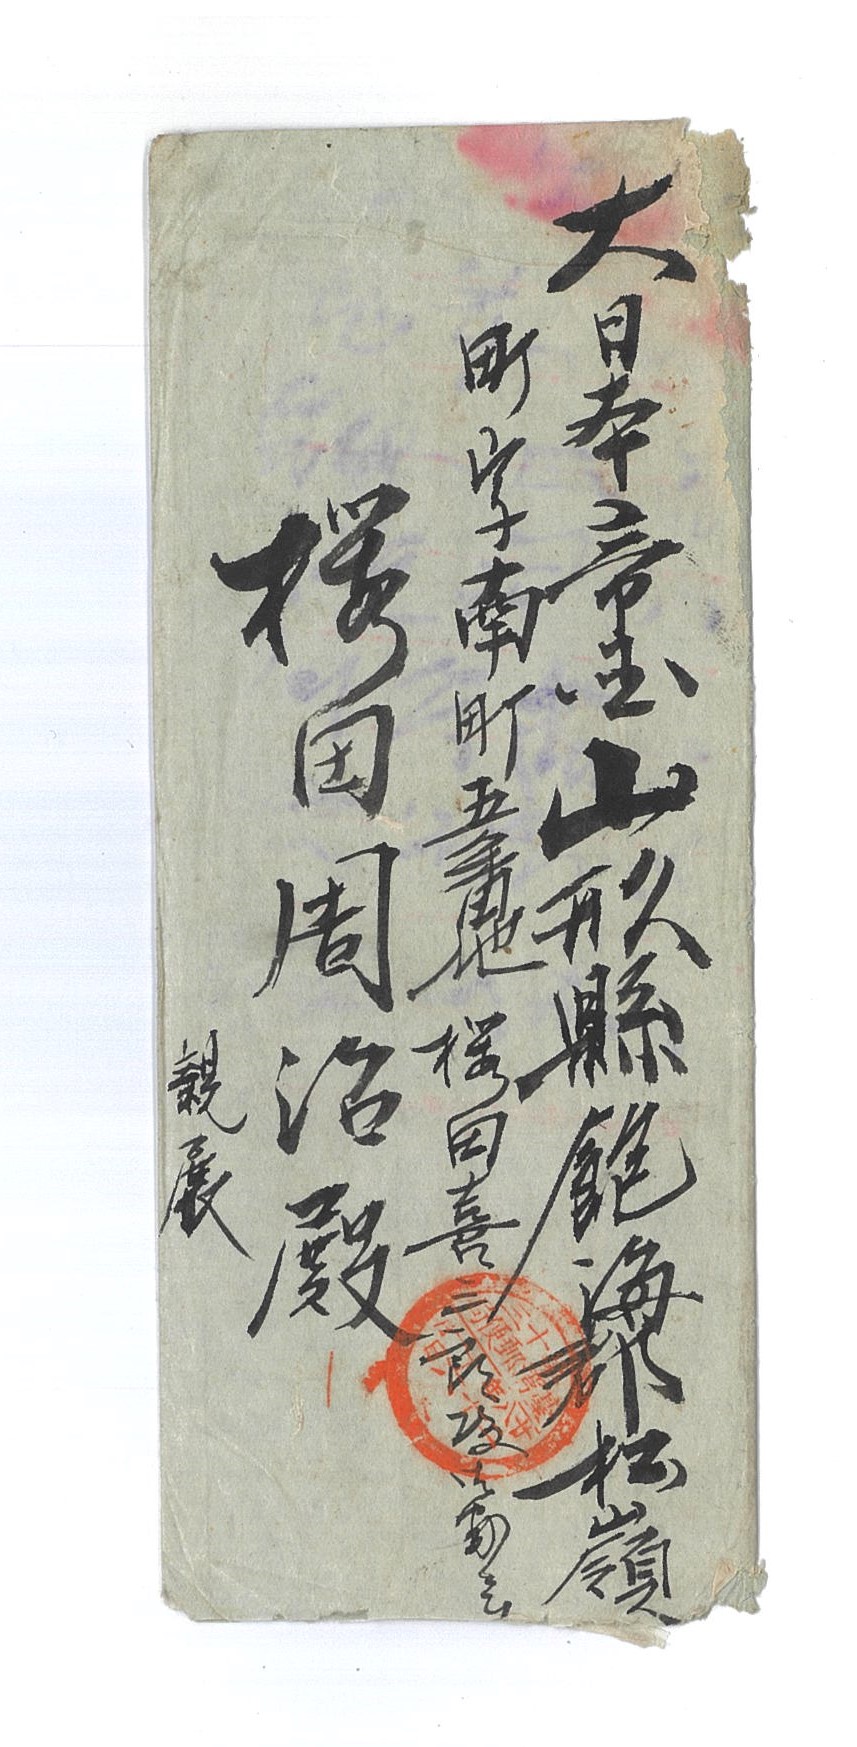 大日本帝国山形縣飽海郡松嶺
町字南町五番地 桜田喜三郎
桜田周治殿
親展